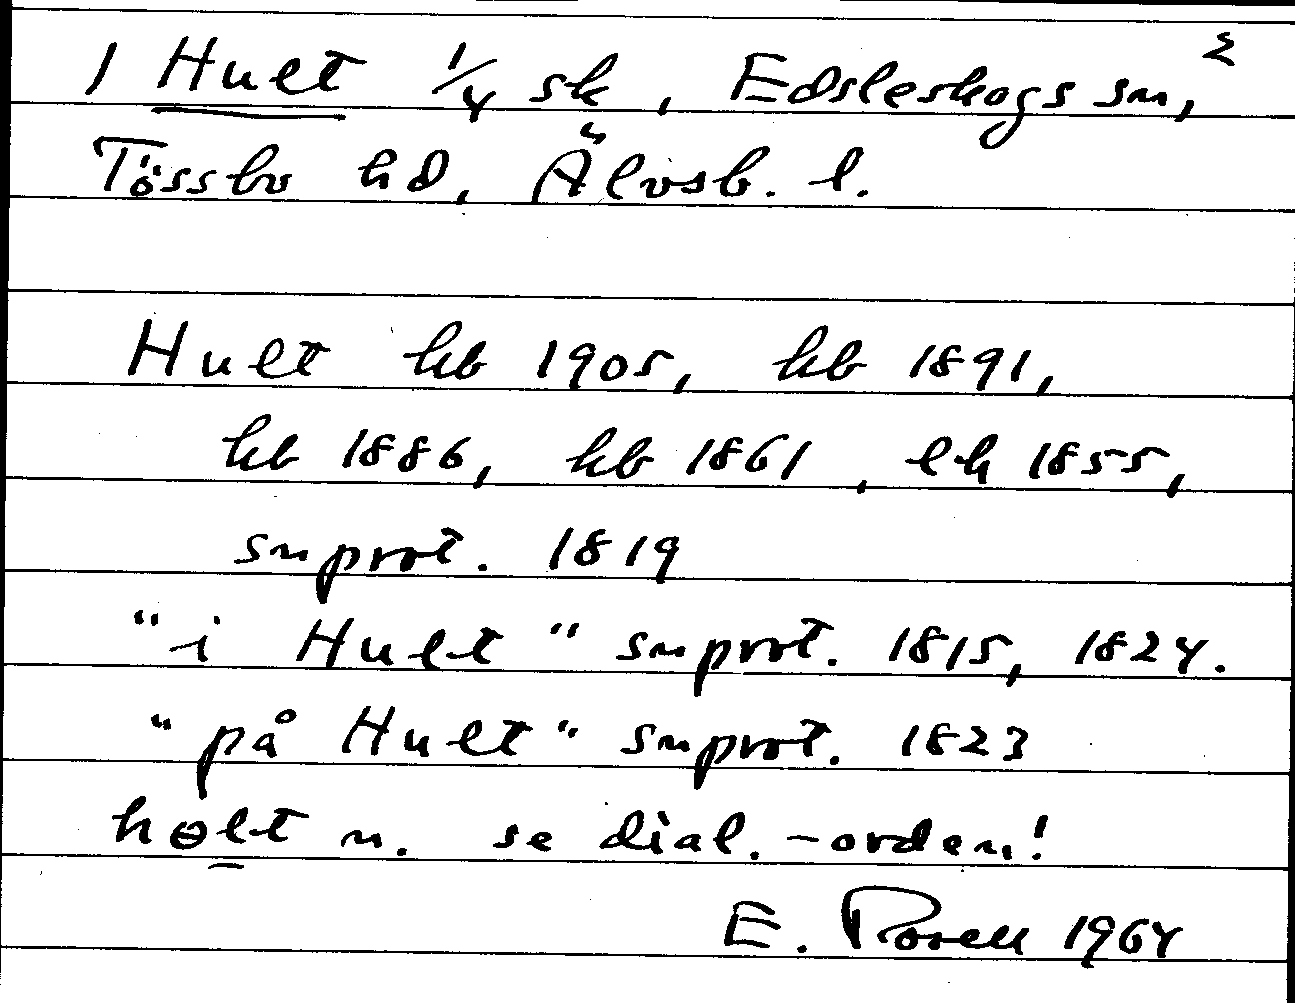 1 Hult 1/4 sk, Edsleskogs sn, 2
Tössbo hd, Älvsb. l.
Hult hb 1905, hb 1891,
hb 1886, hb 1861, ek 1855,
snprot. 1819
"i Hult" snprot. 1815, 1824.
"på Hult" snprot. 1823
hɵlt n. se dial.-orden!
E. 1964